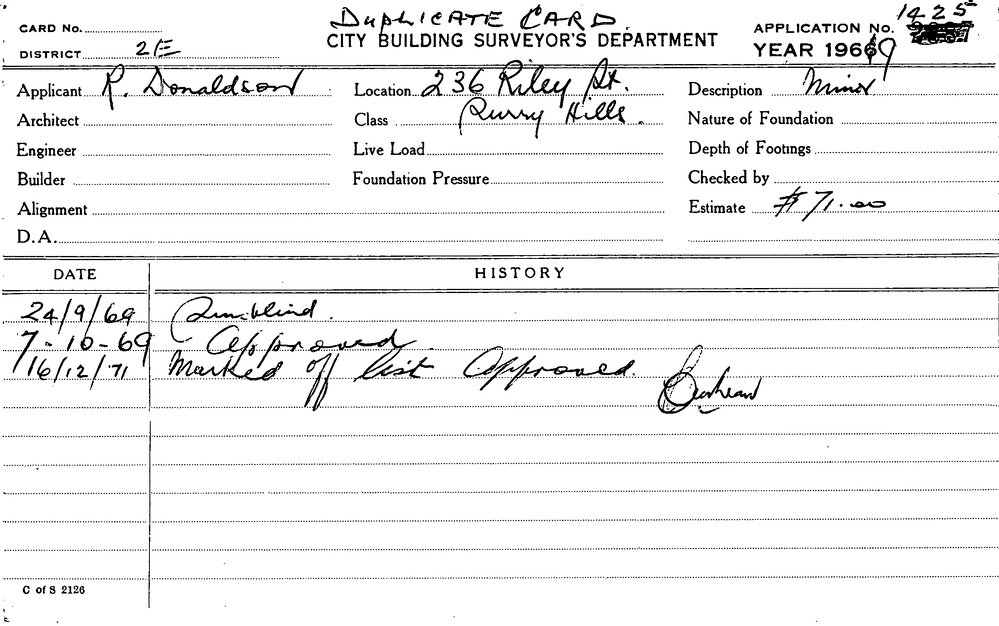 DUPLICATE CARD.
CARD No.
CITY BUILDING SURVEYOR'S DEPARTMENT
APPLICATION No. 1425
DISTRICT 2E
YEAR 1969
Applicant R. Donaldson
Location 236 Riley St.
Description Minor
Architect
Class Surry Hills.
Nature of Foundation
Engineer
Live Load
Depth of Footings
Builder
Foundation Pressure
Checked by
Alignment
Estimate $71.00
D.A.
DATE HISTORY
24/9/69 Sunblind.
7-10-69 Approved
16/12/71 Marked off list Approved.
C of S 2126